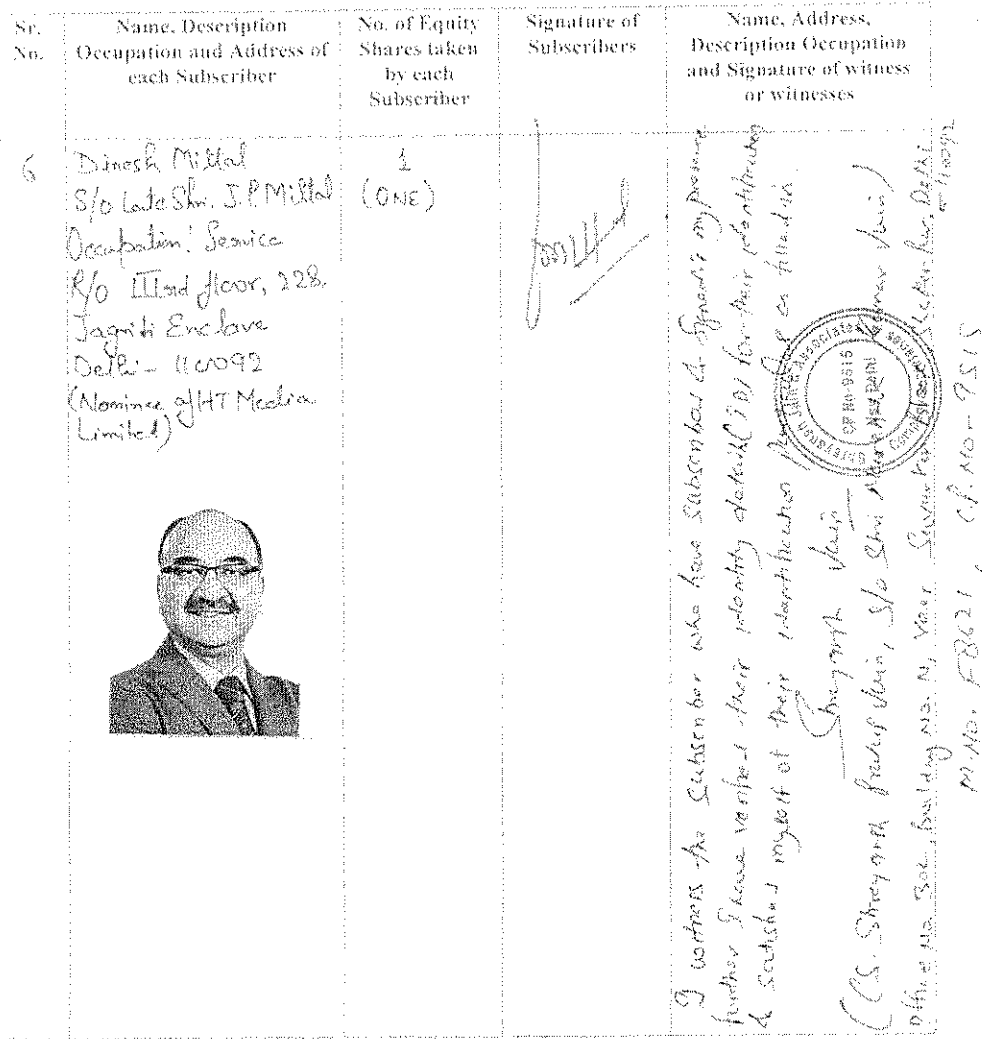 Sr.
No.
Name, Description
Occupation and Address of
each Subscriber
No. of Equity
Shares taken
by each
Subscriber
Signature of
Subscribers
Name, Address,
Description Occupation
and Signature of witness
or witnesses
6
Dinesh Mittal
S/o Late Shri. J.P. Mittal
Occupation: Service
R/o IIIrd floor, 228.
Jagriti Enclave
Delhi - 110092
(Nominee of HT Media
Limited)
1
(ONE)
I witness the Subscriber who have Subscribed & Signed in my presence
further I have verified their identity details (ID) for their identification
& satisfied myself of their identification as filled in
Shreyansh Jain
(CS. Shreyansh Jain, S/o Shri Jain)
Office No. 302, Building No. N, Delhi
110092
M.No. F8621, C.P. No - 9515
Shreyansh Jain & Associates
CP No-9515